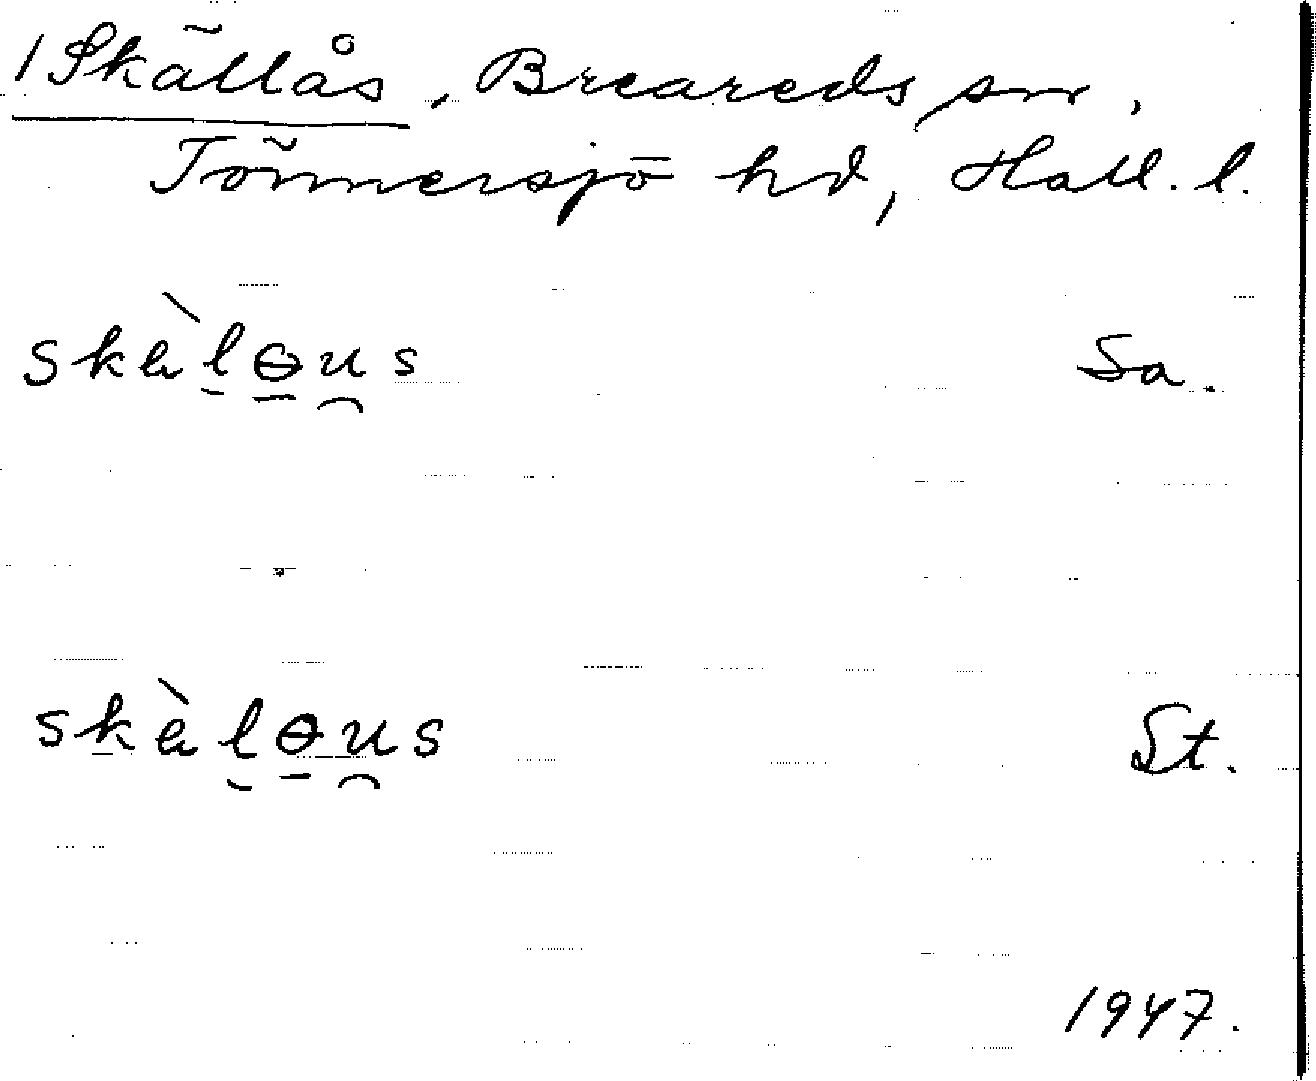 1 Skällås, Breareds sn,
Tönnersjö hd, Hall. l.
skæ̀lɵu̯s Sa.
skæ̀lɵu̯s St.
1947.